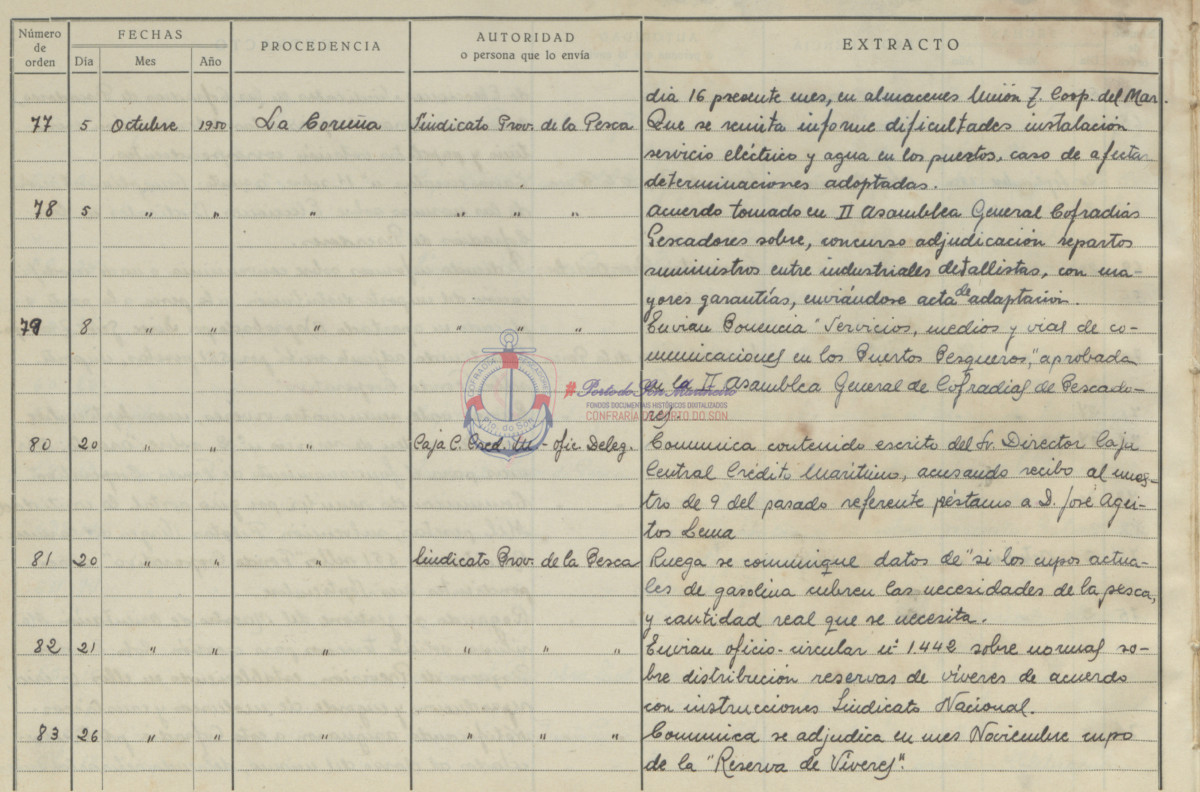 Número de orden FECHAS PROCEDENCIA AUTORIDAD o persona que lo envía EXTRACTO
Día Mes Año
dia 16 presente mes, en almacenes Unión T. Coop. del Mar.
77 5 Octubre 1950 La Coruña Sindicato Prov. de la Pesca Que se remita informe dificultades instalación
servicio eléctrico y agua en los puertos, caso de afectar
determinaciones adoptadas.
78 5 " " " " " " Acuerdo tomado en II Asamblea General Cofradias
Pescadores sobre, concurso adjudicación repartos
suministros entre industriales detallistas, con ma-
yores garantías, enviándose acta de adaptación.
79 8 " " " " " " Envian Ponencia "Servicios, medios y vias de co-
municaciones en los Puertos Pesqueros," aprobada
en la II Asamblea General de Cofradias de Pescado-
res.
80 20 " " " Caja C. Cred. M.- Ofic. Deleg. Comunica contenido escrito del Sr. Director Caja
Central Crédito Marítimo, acusando recibo al nues-
tro de 9 del pasado referente péstamo a D. José Agei-
tos Lema
81 20 " " " Sindicato Prov. de la Pesca Ruega se comunique datos de "si los cupos actua-
les de gasolina cubren las necesidades de la pesca,
y cantidad real que se necesita.
82 21 " " " " " " Envian oficio-circular nº 1.442 sobre normas so-
bre distribución reservas de víveres de acuerdo
con instrucciones Sindicato Nacional.
83 26 " " " " " Comunica se adjudica en mes Noviembre cupo
de la "Reserva de Víveres".
COFRADÍA PESCADORES
Pto. do Son
#Porto do Son Mariñeiro
FONDOS DOCUMENTAIS HISTÓRICOS DIXITALIZADOS
CONFRARÍA DE PORTO DO SON